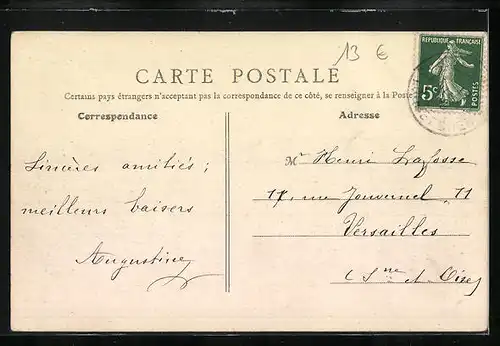 13 €
RÉPUBLIQUE FRANÇAISE
5c
POSTES
CARTE POSTALE
Certains pays étrangers n'acceptant pas la correspondance de ce côté, se renseigner à la Poste
Correspondance
Adresse
Sincères amitiés ;
meilleurs baisers
Augustine
Mr Henri Lafosse
17, rue Jouvencel 71
Versailles
(Sne et Oise)